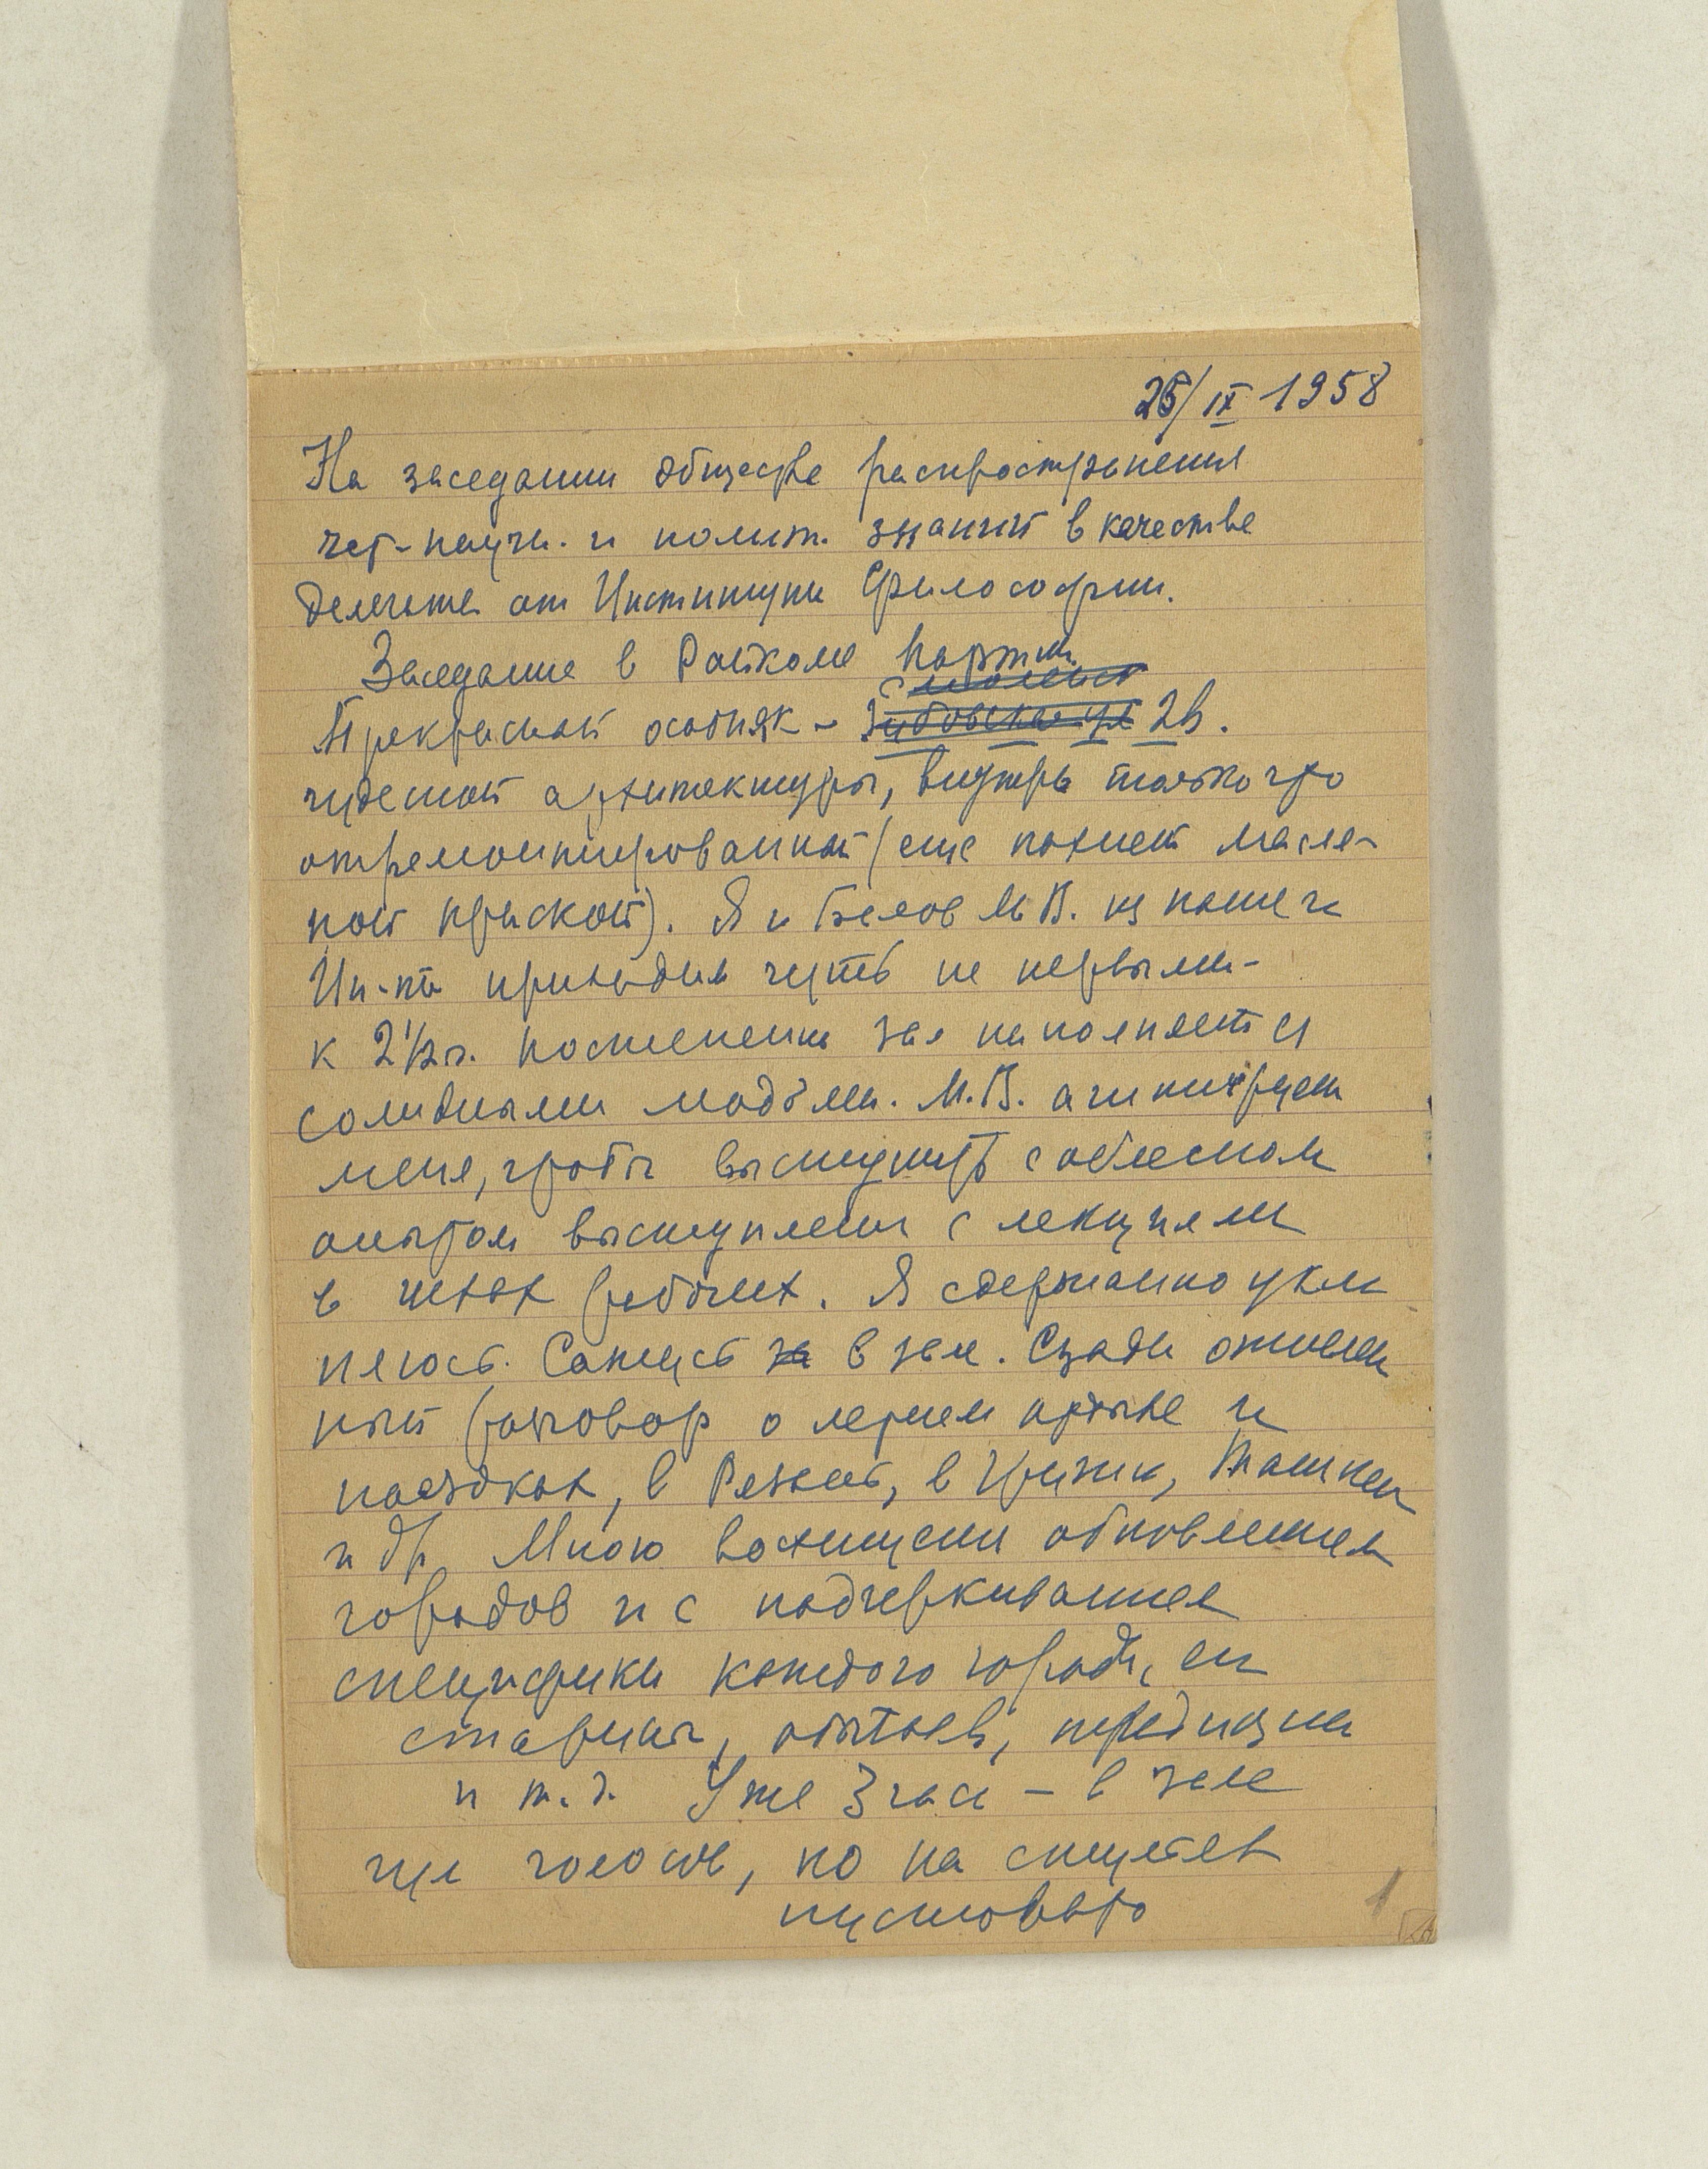 25/IX 1958
На заседании общества распространения
науч. и полит. знаний в качестве
делегата от Института Философии.
Заседание в Райкоме партии.
Смоленск
Прекрасный особняк – Зубовская ул 2в.
чудесной архитектуры, внутри только что
отремонтированный (еще пахнет масля-
ной краской). Я и Белов М.В. из нашего
Ин-та приходим чуть не первыми –
к 2 1/2 ч. постепенно зал наполняется
солидными людьми. М.В. агитирует
меня, чтобы выступить с обменом
опытом выступления с лекциями
в цехах рабочих. Я сдержанно укло
няюсь. Сажусь за в зал. Сзади оживлен
ный разговор о летнем отдыхе и
поездках, в Рязань, в Ташкен
и др. Мною восхищении обновлением
городов и с подчеркиванием
специфики каждого города, его
старины, обычаев, традиции
и т.д. Уже 3 часа – в зале
гул голосов, но на скамьях
пустовато
1